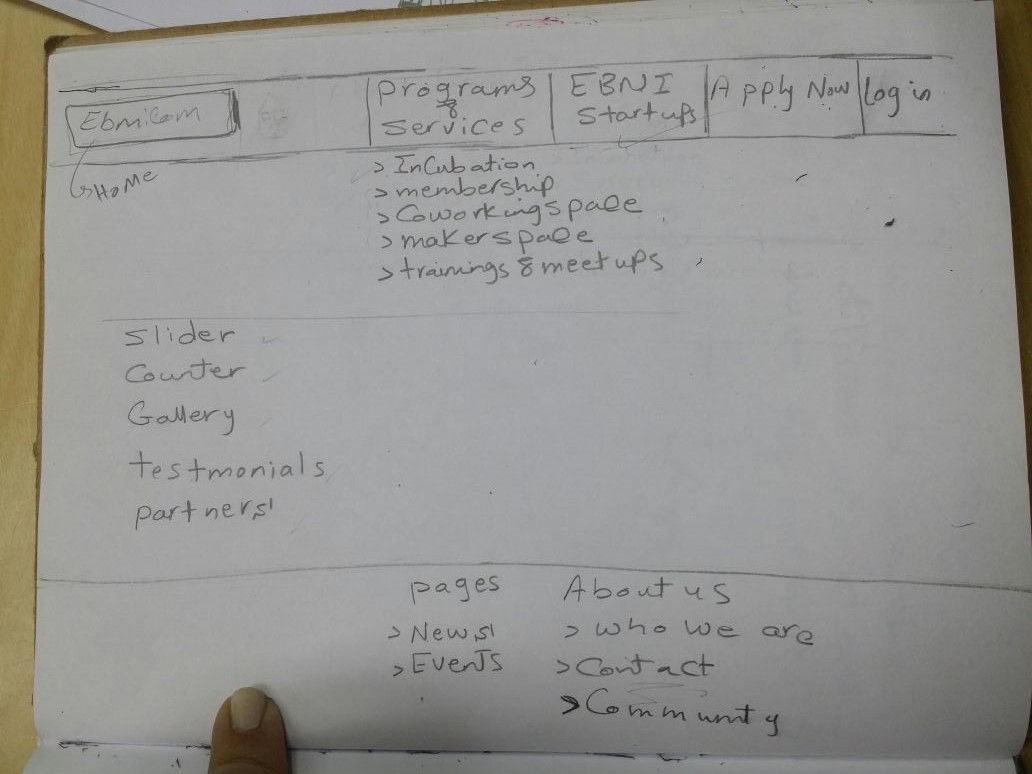 Programs EBNI Apply Now Log in
Ebni.com & Startups
Services
HOME
> InCubation
> membership
> Coworkingspace
> makerspace
> trainings & meetups
Slider
Counter
Gallery
testmonials
partners
pages About us
> News > who we are
> Events > Contact
> Community